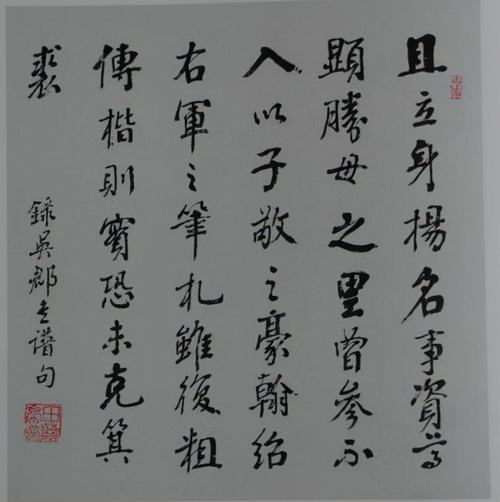 且立身揚名事資尊
顯勝母之里曾參不
入以子敬之豪翰紹
右軍之筆札雖復粗
傳楷則實恐未克箕
裘
錄吳郡書譜句